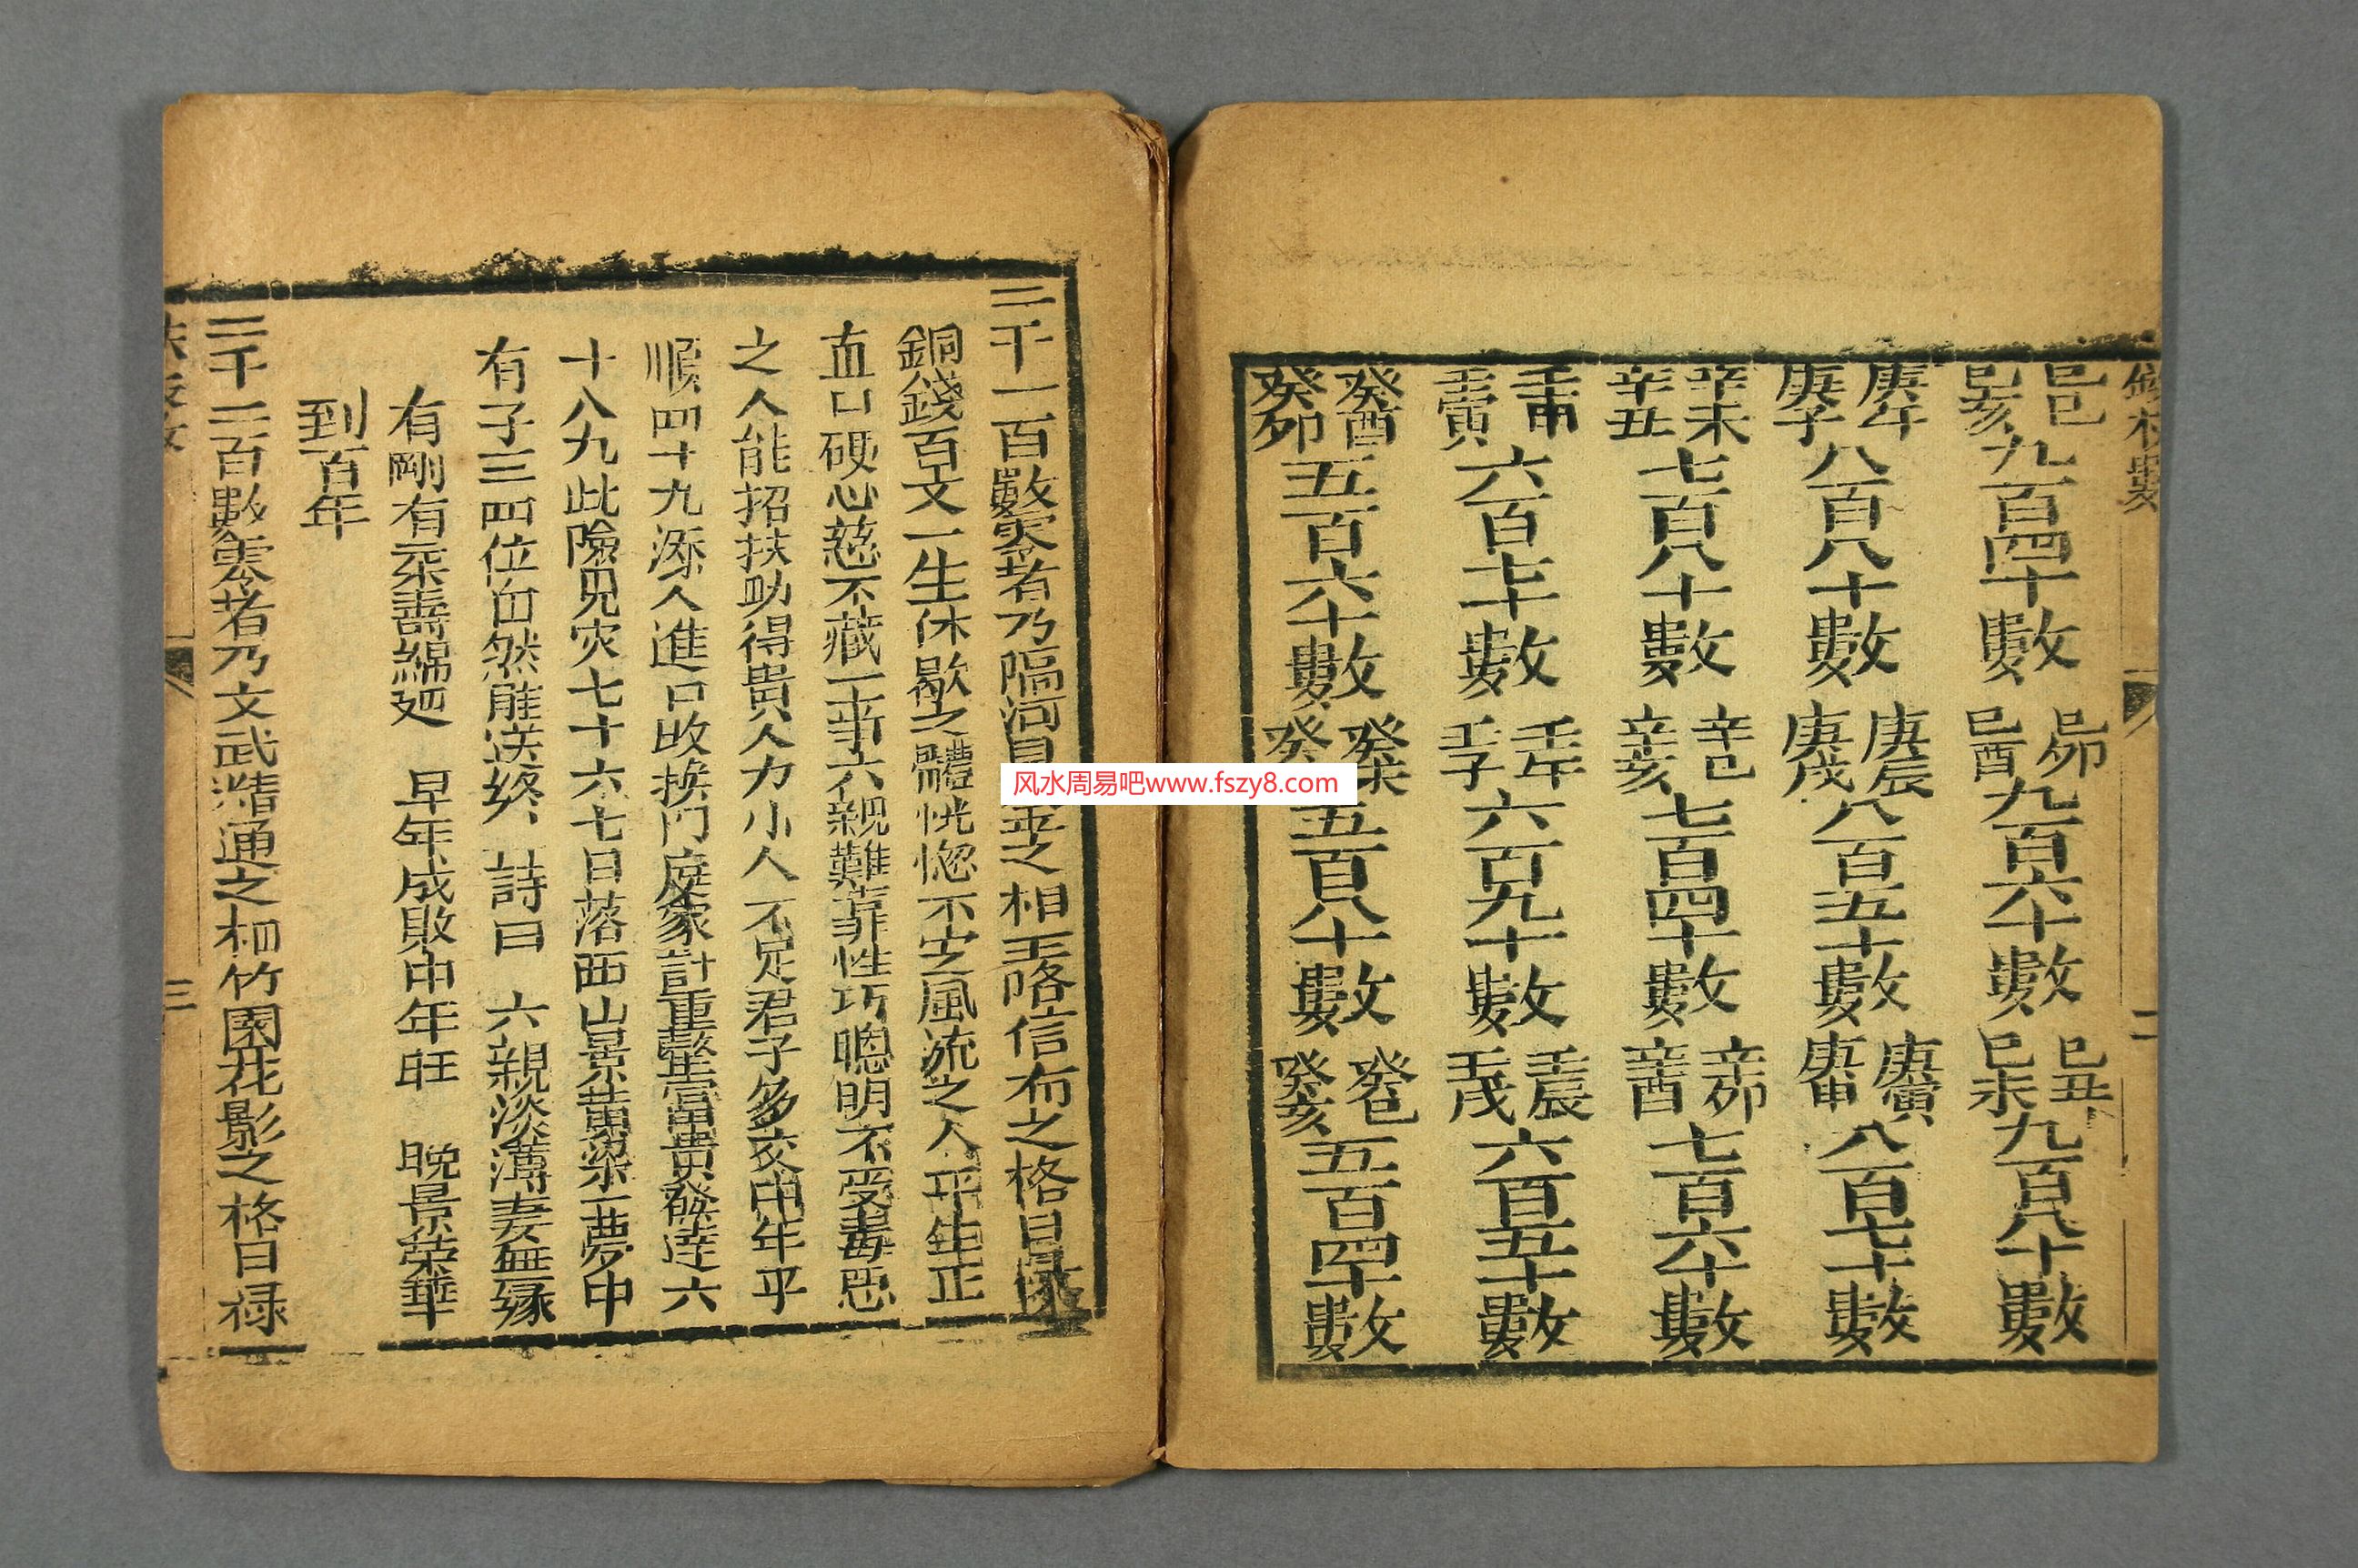 巳巳巳亥九百四十數 巳卯巳酉九百六十數 巳丑巳未九百八十數
庚午庚子八百八十數 庚辰庚戌八百五十數 庚寅庚申八百七十數
辛未辛丑七百八十數 辛巳辛亥七百四十數 辛卯辛酉七百六十數
壬申壬寅六百七十數 壬午壬子六百九十數 壬辰壬戌六百五十數
癸酉癸卯五百六十數 癸未癸五百八十數 癸巳癸亥五百四十數
二
三千一百數零者乃隔河之相玉咯信布之格日祿
銅錢百文一生休歇之體恍惚不定風流之人平生正
直口硬心慈不藏一事六親難靠性巧聰明不受毒惡
之人能招扶助得貴人力小人不足君子多交中年平
順四十九添人進口改換門庭家計重整富貴發達六
十八九此險見灾七十六七日落西山景黃粱一夢中
有子三四位自然雁送終 詩曰 六親淡薄妻無緣
有剛有柔壽綿延 早年成敗中年旺 晚景榮華
到百年
三千二百數零者乃文武精通之相竹園花影之格日禄
三
风水周易吧www.fszy8.com